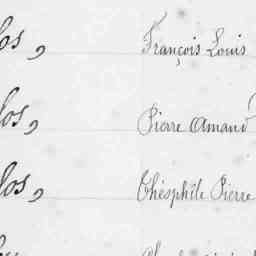 los, François Louis
los, Pierre Amand
los, Théophile Pierre